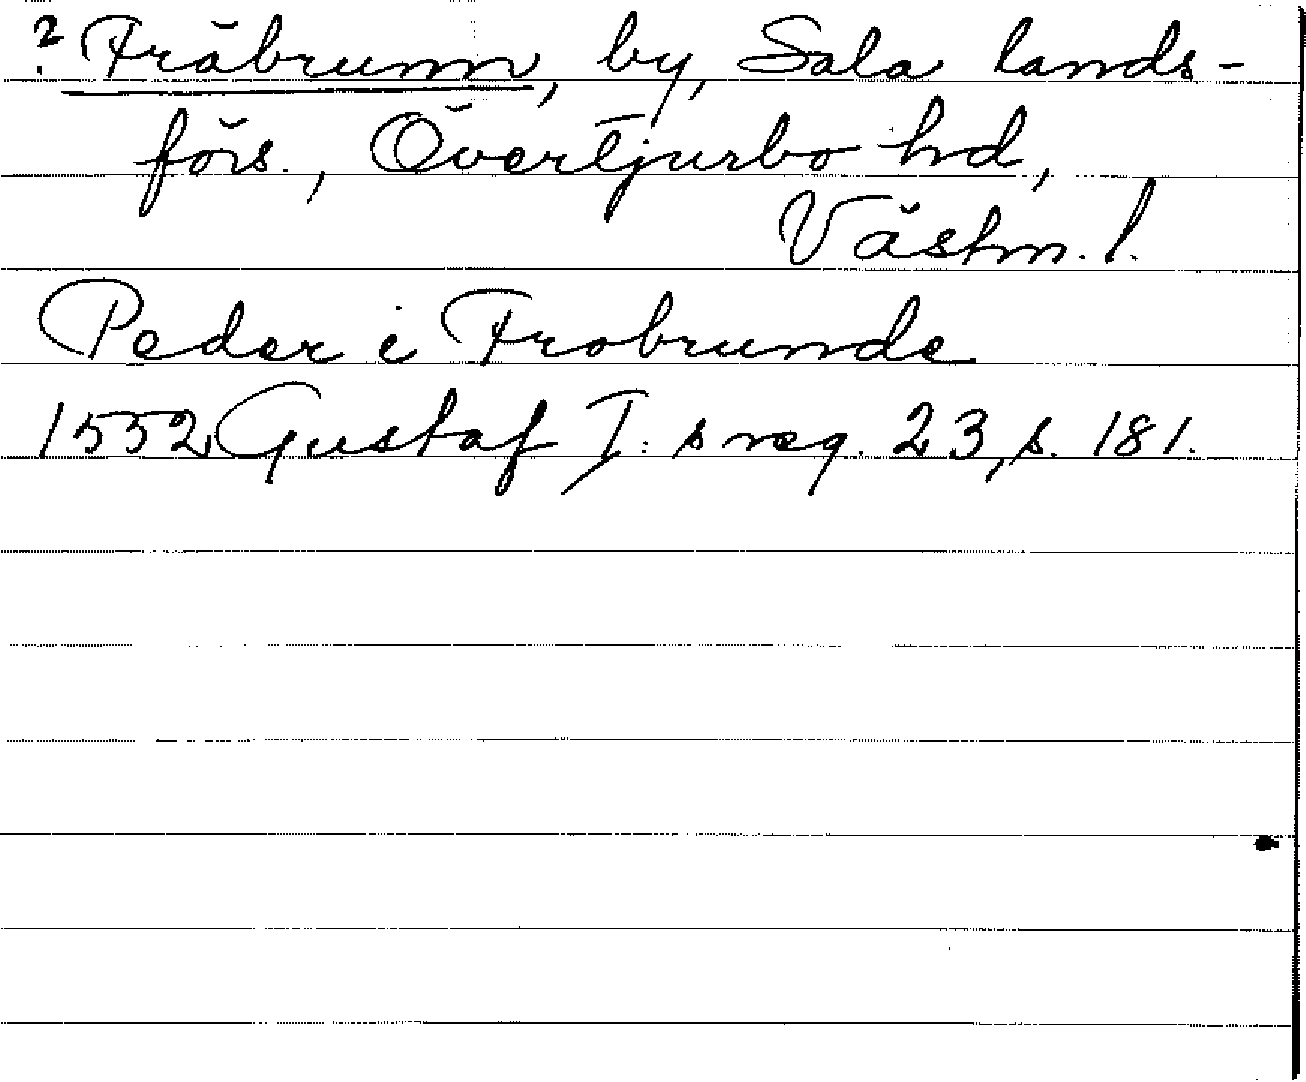 ? Fräbrunn, by, Sala lands-
förs., Övertjurbo hd,
Västm. l.
Peder i Frobrunde
1552 Gustaf I: s reg. 23, s. 181.